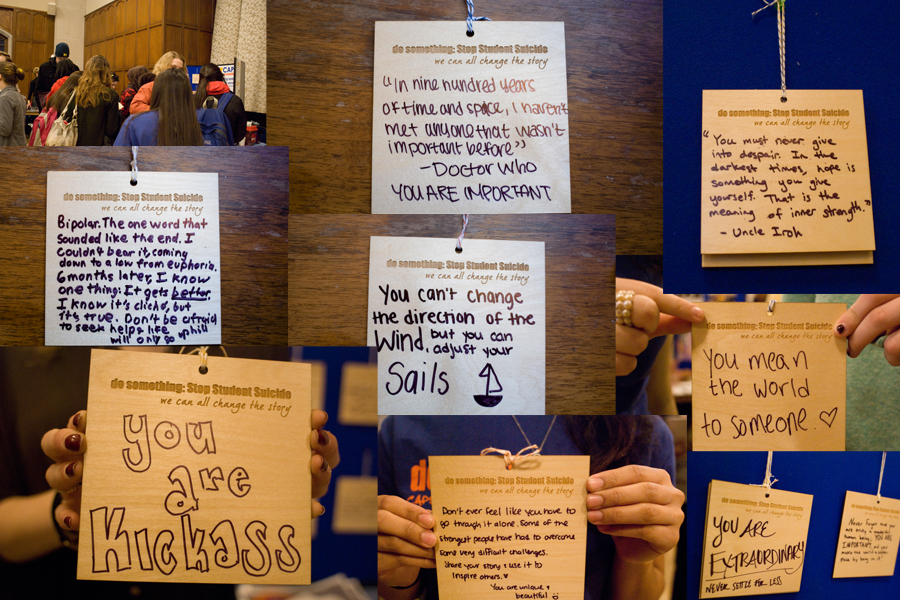 CAP
do something: Stop Student Suicide
we can all change the story
"In nine hundred years
of time and space, I haven't
met anyone that wasn't
important before"
-Doctor Who
YOU ARE IMPORTANT
do something: Stop Student Suicide
we can all change the story
"You must never give
into despair. In the
darkest times, hope is
something you give
yourself. That is the
meaning of inner strength."
- Uncle Iroh
do something: Stop Student Suicide
we can all change the story
Bipolar. The one word that
sounded like the end. I
couldn't bear it, coming
down to a low from euphoria.
6 months later, I know
one thing: It gets better.
I know it's cliché, but
it's true. Don't be afraid
to seek help & life uphill
will only go
do something: Stop Student Suicide
we can all change the story
You can't change
the direction of the
Wind, but you can
adjust your
Sails
do something: Stop Student Suicide
we can all change the story
You mean
the world
to someone. ♡
do something: Stop Student Suicide
we can all change the story
You
are
Kickass
do
CAPS
do something: Stop Student Suicide
we can all change the story
Don't ever feel like you have to
go through it alone. Some of the
strongest people have had to overcome
some very difficult challenges.
Share your story & use it to
inspire others. ♥
You are unique &
beautiful ☺
do something: Stop Student Suicide
we can all change the story
YOU ARE
EXTRAORDINARY
NEVER SETTLE FOR LESS
do something: Stop Student Suicide
we can all change the story
Never forget that you
are truly a wonderful
human being. YOU ARE
IMPORTANT and you
make the world a better
place by being in it.